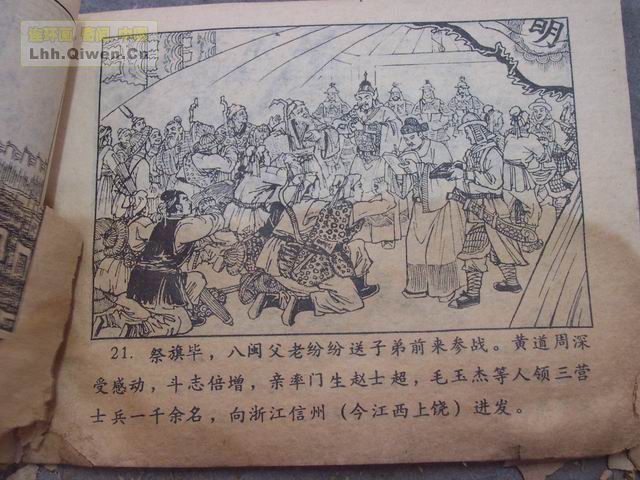 连环画 奇闻 中国
Lhh.Qiwen.Cn
明
21. 祭旗毕，八闽父老纷纷送子弟前来参战。黄道周深
受感动，斗志倍增，亲率门生赵士超，毛玉杰等人领三营
士兵一千余名，向浙江信州（今江西上饶）进发。